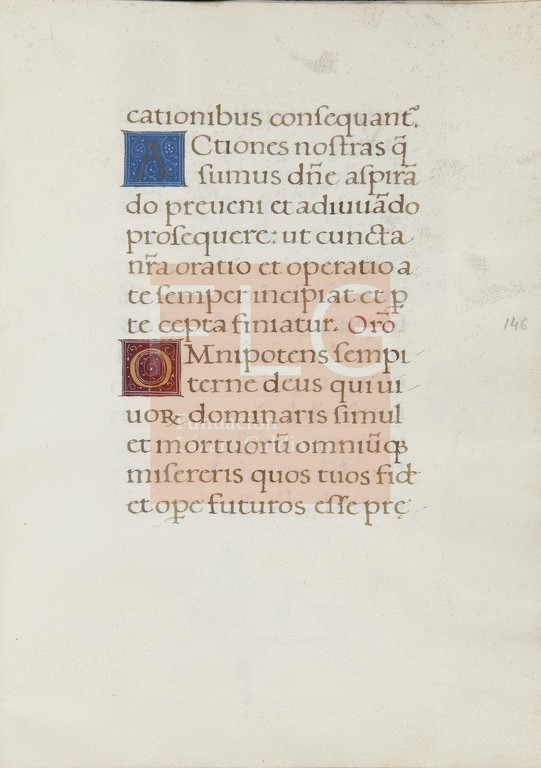 cationibus consequant᷑.
ACtiones nostras q̃
sumus dñe aspirã
do preueni et adiuuãdo
prosequere: ut cuncta
nr̃a oratio et operatio a
te semper incipiat et p̲
te cepta finiatur. Orõ
OMnipotens sempi
terne deus qui ui
uoꝝ dominaris simul
et mortuorũ omniũqꝫ
misereris quos tuos fid
et ope futuros esse pre
146
FLG
Fundación